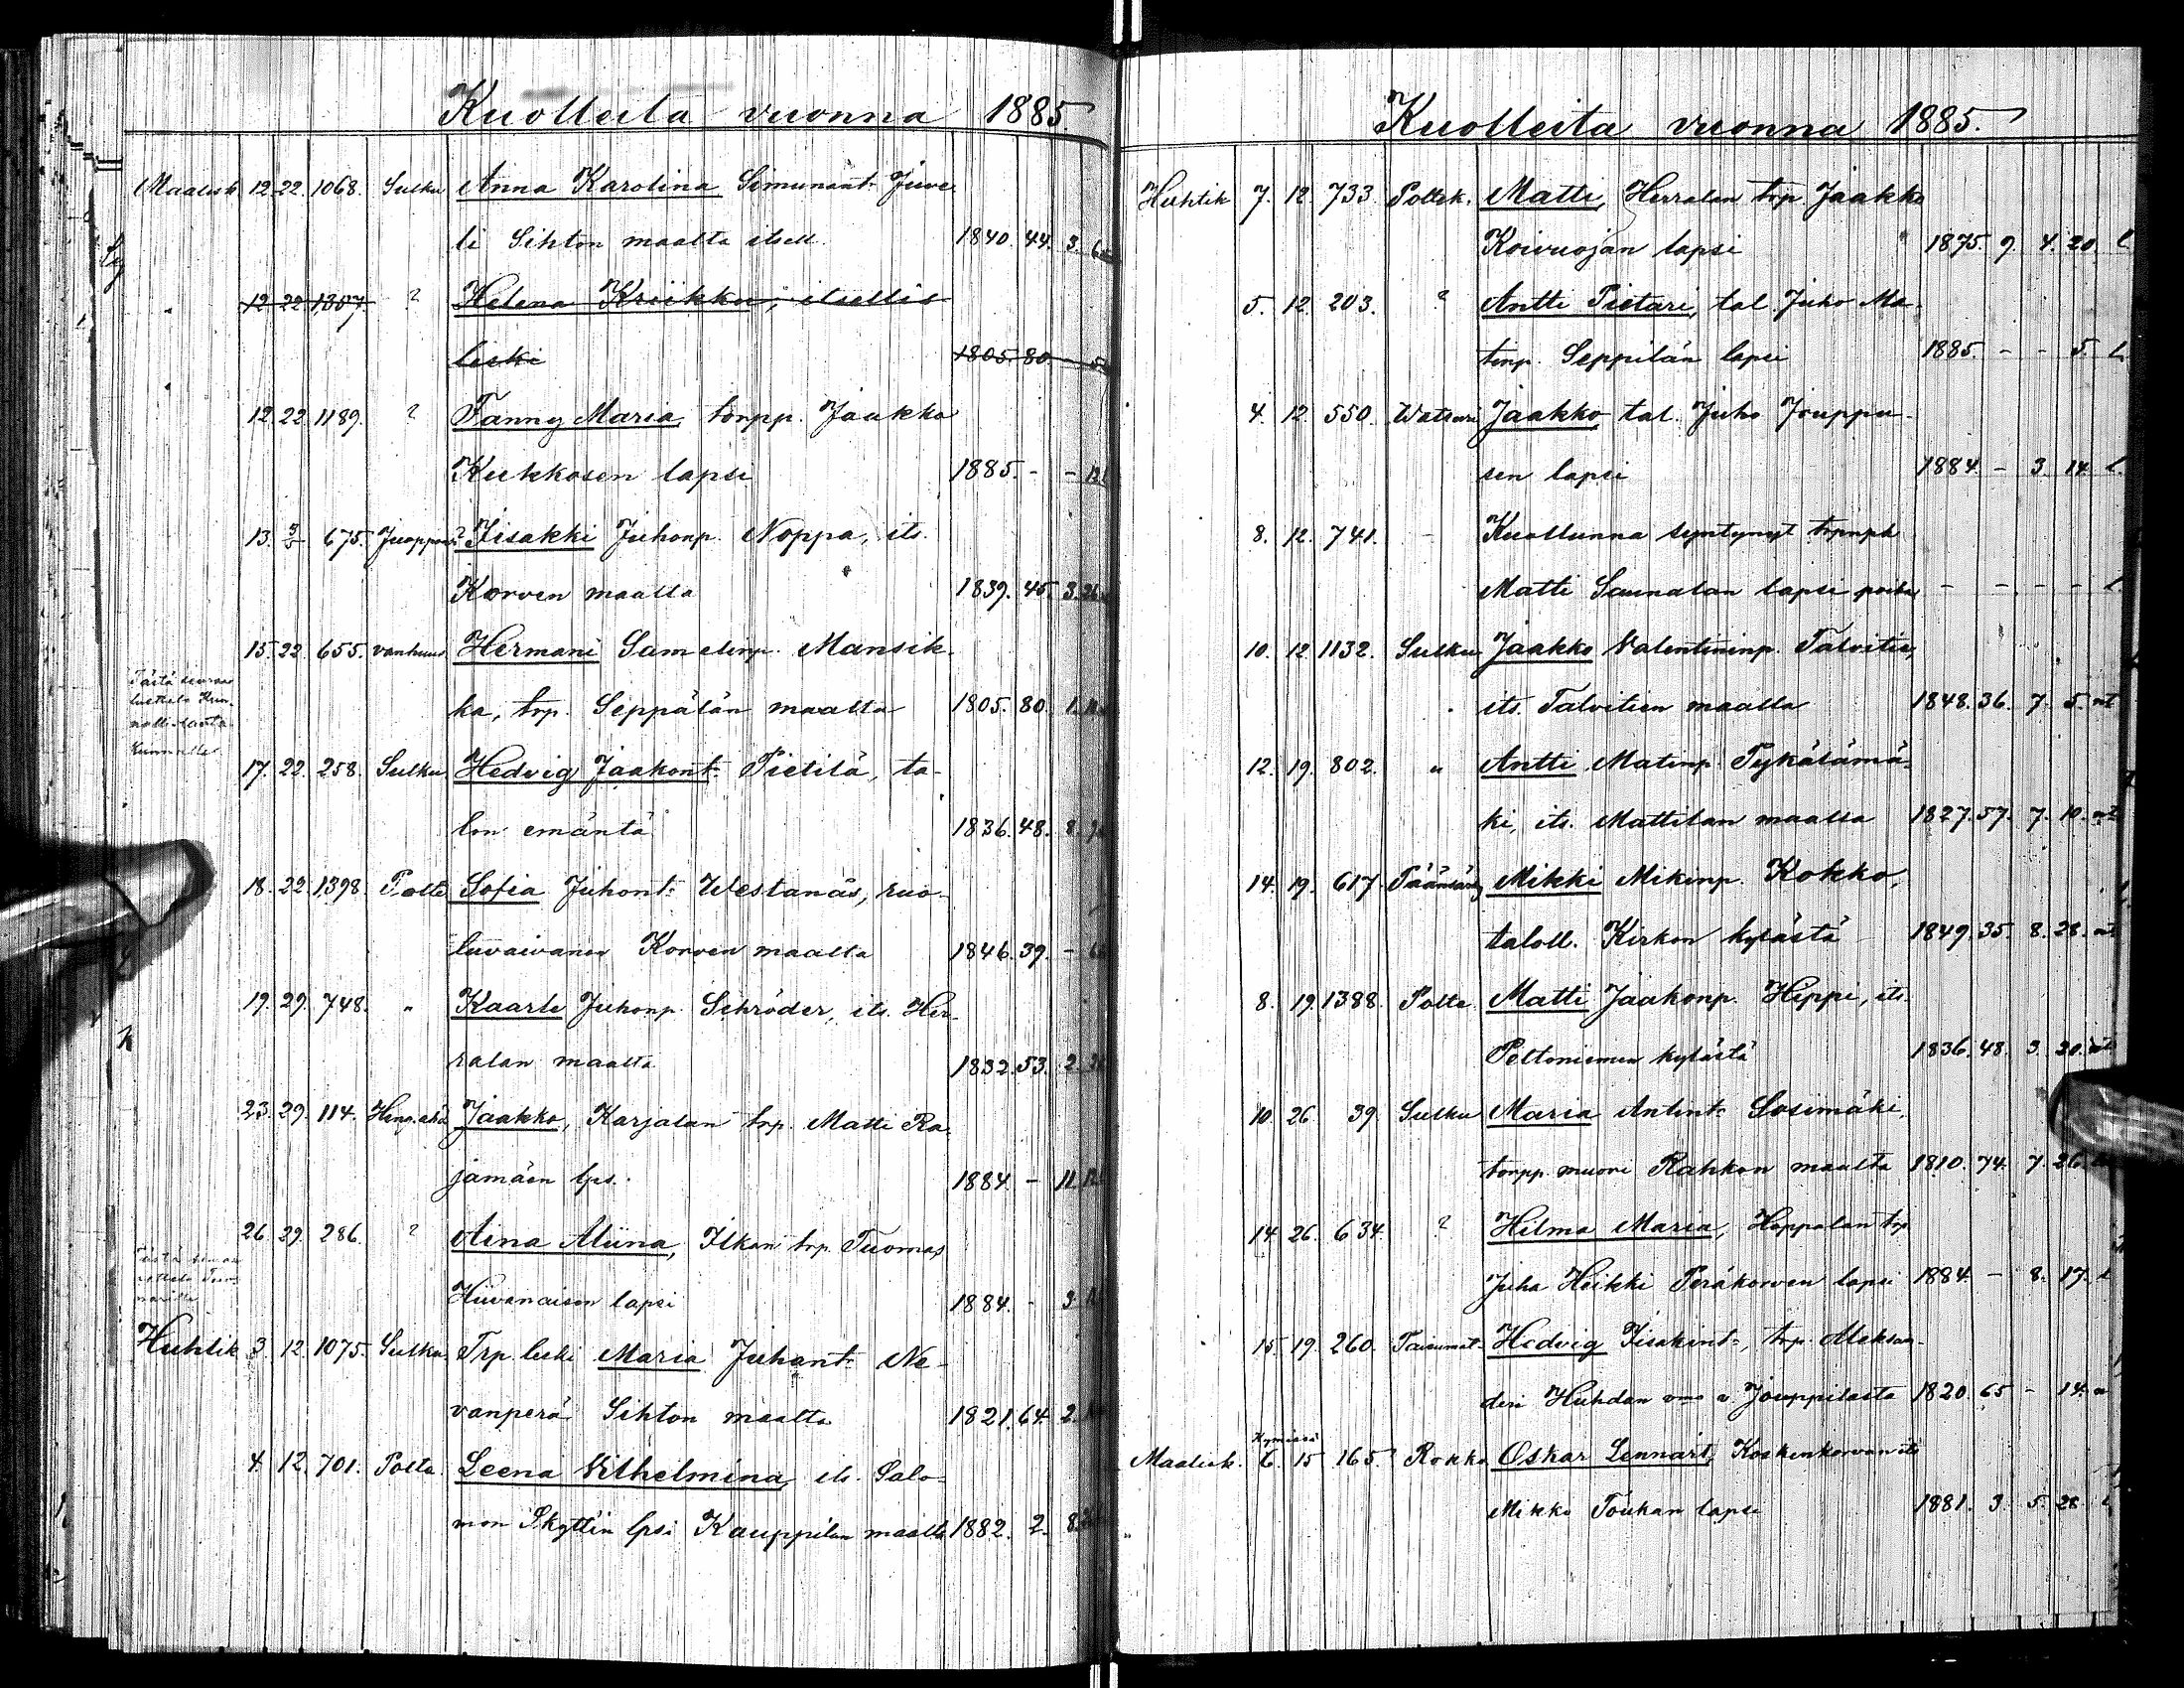 Kuolleita vuonna 1885.
Maalisk 12. 22. 1068. Sulku Anna Karolina Simunant. Juve
li Sihton maalta itsell. 1840. 44. 3.
12 22 1307. ? Helena Kriikku, itsellis
leski 1805. 80. 5
12. 22. 1189. ? Fanny Maria, torpp. Jaakko
Kukkosen lapsi 1885. - - 12
13. 675. Juoppous? Iisakki Juhonp. Noppa, its.
Korven maalta 1839. 45. 3. 26
15. 22. 655. vanhuus Hermani Samelinp. Mansik-
Tästä seuraa
luettelo Kun-
ka, trp. Seppälän maalta 1805. 80. 1.
17. 22. 258. Sulku Hedvig Jaakont. Pietilä, ta-
lon emäntä 1836. 48. 8.
18. 22. 1398. Poltt. Sofia Juhont. Westanäs, ruo-
luvaivanen Korven maalta 1846. 39. -
19. 29. 748. " Kaarle Juhonp. Schröder, its. Her-
ralan maalta 1832. 53. 2.
23. 29. 114. Heng.ahd Jaakko, Karjalan trp. Matti Ra-
jamäen lps. 1884 - 11. 12
26. 29. 286. ? Aina Miina, Ilkan trp. Tuomas
Hiivanaisen lapsi 1884. - 3
Huhtik 3. 12. 1075. Sulku Trp. leski Maria Juhant. Ne-
vanperä Sihton maalta 1821. 64. 2.
4. 12. 701. Poltt. Leena Vilhelmina, its. Salo-
mon Skyttin lpsi Kauppilan maalta 1882. 2. 8.
Kuolleita vuonna 1885.
Huhtik 7. 12. 733. Poltt. Matti, Herralan trp. Jaakko
Koivuojan lapsi 1875. 9. 4. 20. l.
5. 12. 203. ? Antti Pietari, tal. Juho Ma-
tinp. Seppilän lapsi 1885. - - 5. l.
4. 12. 550. Watsuri Jaakko, tal. Juho Jouppu-
sen lapsi 1884. - 3. 14. l.
8. 12. 741. - Kuollunna syntynyt
Matti Saunalan lapsi poika - - - - l.
10. 12. 1132. Sulku Jaakko Valentininp. Talvitie,
its. Talvitien maalta 1848. 36. 7. 5. nt
12. 19. 802. " Antti Matinp. Pykälämä-
ki, its. Mattilan maalla 1827. 57. 7. 10. nt
14. 19. 617. Päänsärky Mikki Mikinp. Kokko,
taloll. Kirkon kylästä 1849. 35. 8. 28. nt
8. 19. 1388. Poltt. Matti Jaakonp. Hippi, its.
Peltoniemen kylästä 1836. 48. 3. 20. nt
10. 26. 39. Sulku Maria Antint. Sosimäki,
torpp. muori Rahkon maalta 1810. 74. 7. 26.
14. 26. 634. ? Hilma Maria, Hoppalan trp
Juha Heikki Peräkorven lapsi 1884. - 8. 17. l
15. 19. 260. Hedvig Iisakint., trp. Aleksan-
deri Huhdan vmo v. Jouppilasta 1820. 65 - 14.
Kymissä
Maalisk. 6. 15 165. Rokko Oskar Lennart, Koskenkorvan its
Mikko Töukan lapsi 1881. 3. 5. 28. l